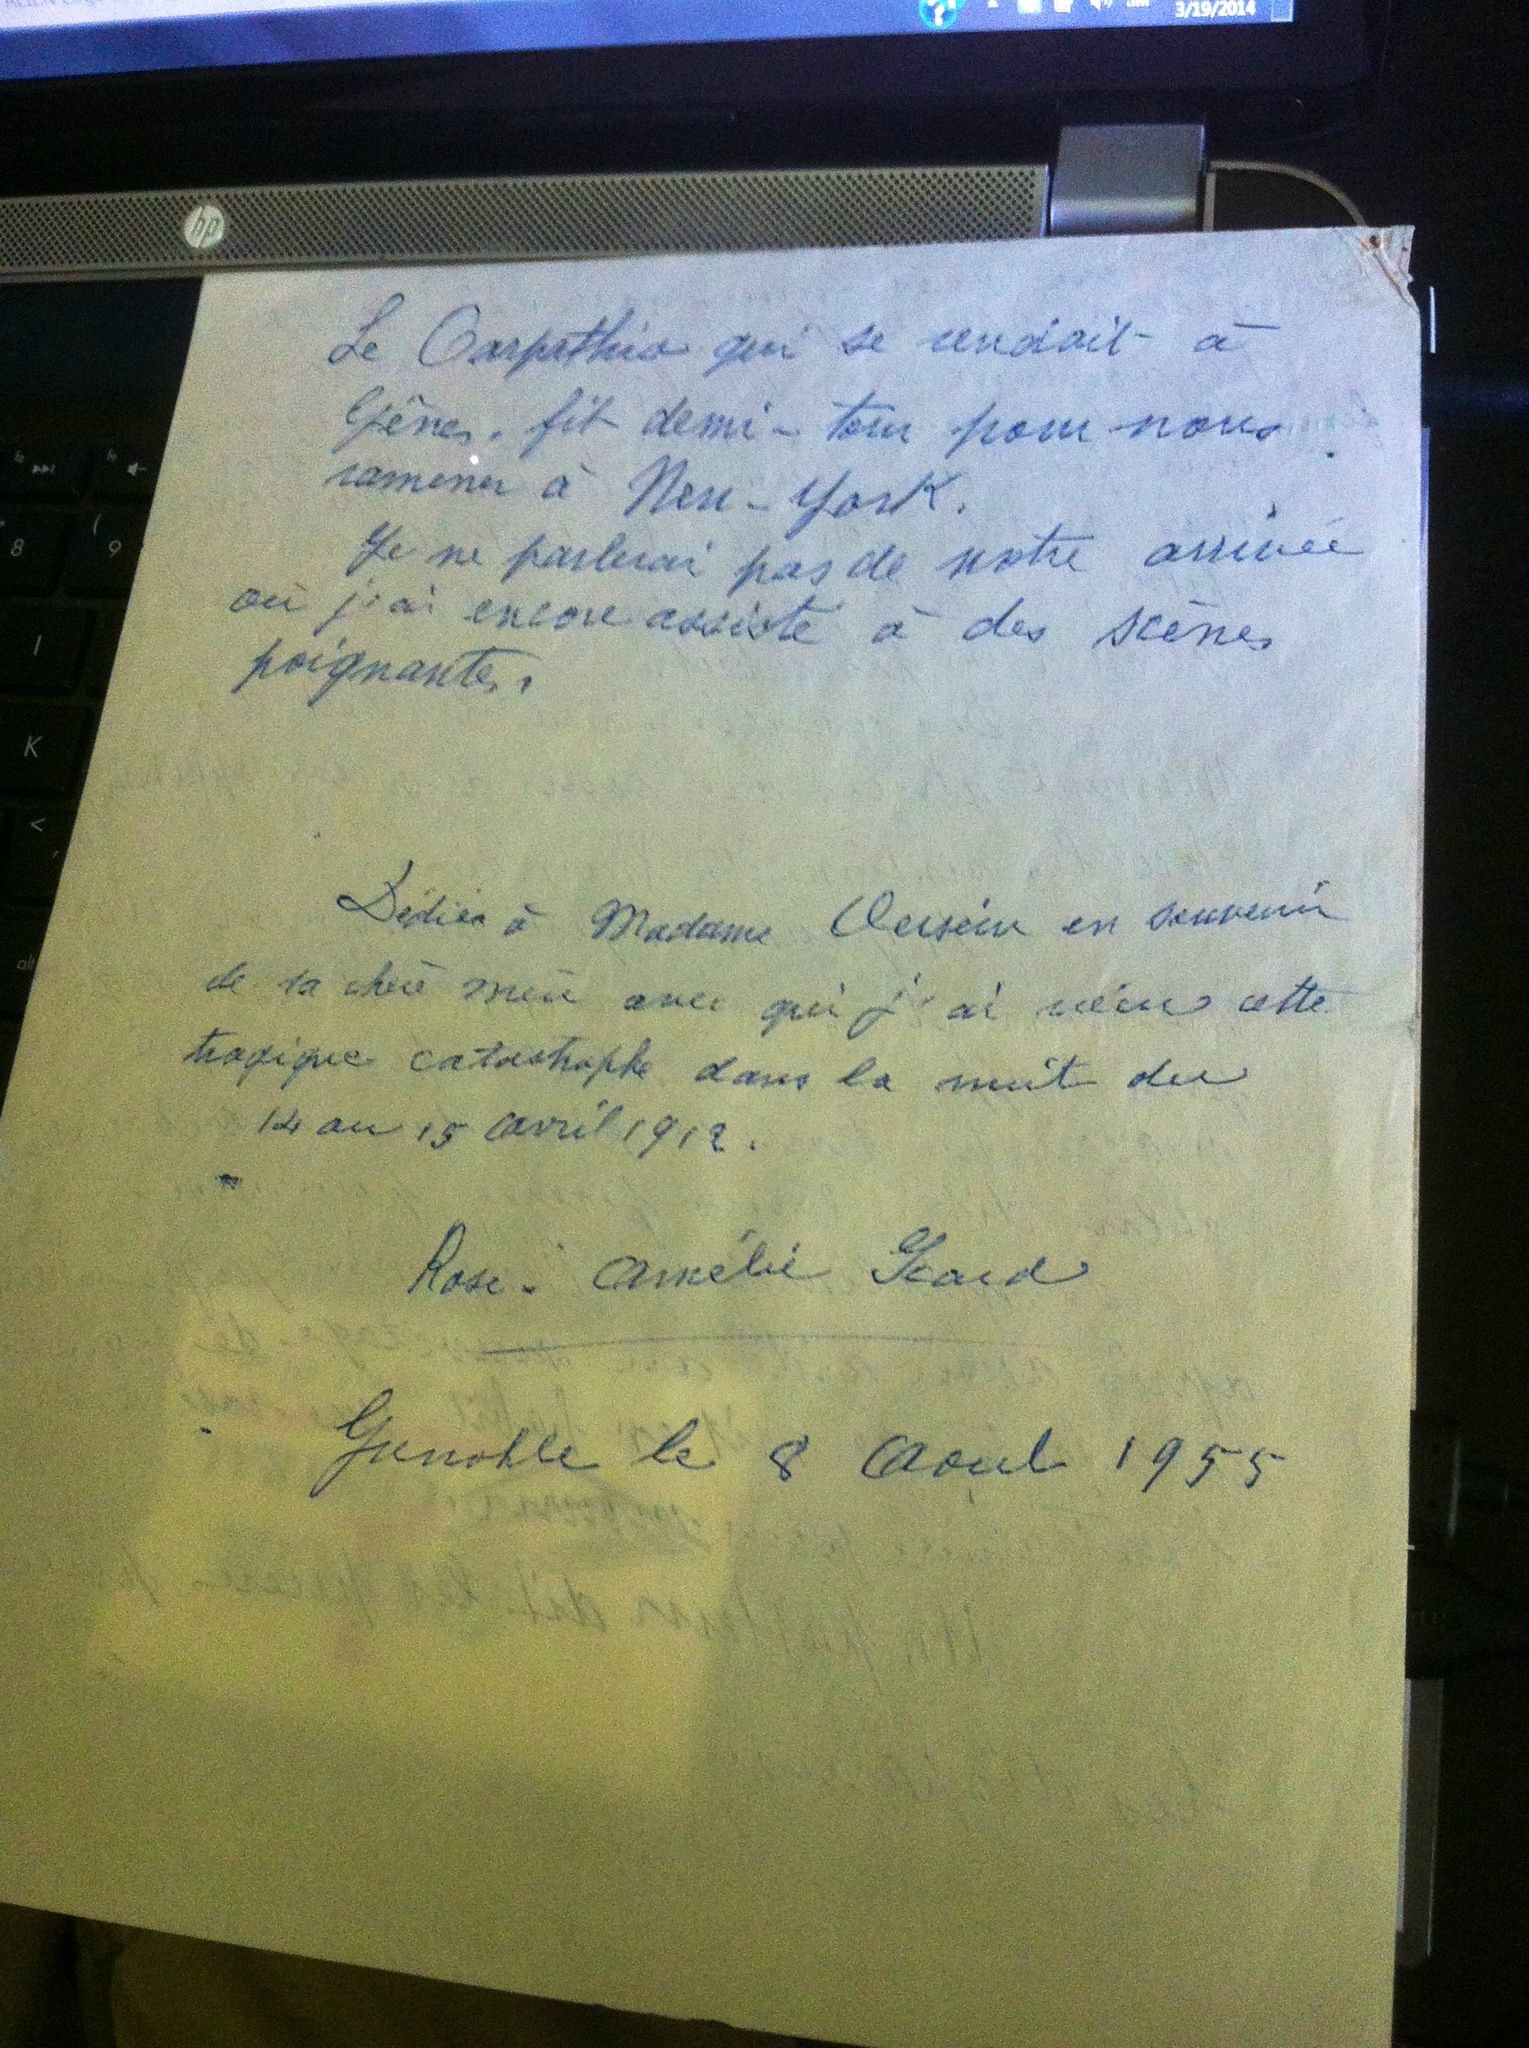 3/19/2014
hp
8
9
I
K
<
alt
Le Carpathia qui se rendait à
Gênes, fit demi-tour pour nous
ramener à New-York.
Je ne parlerai pas de notre arrivée
où j'ai encore assisté à des scènes
poignantes.
Dédiée à Madame en souvenir
de sa chère mère avec qui j'ai vécu cette
tragique catastrophe dans la nuit du
14 au 15 avril 1912.
Rose-Amélie Icard
Grenoble le 8 Aout 1955